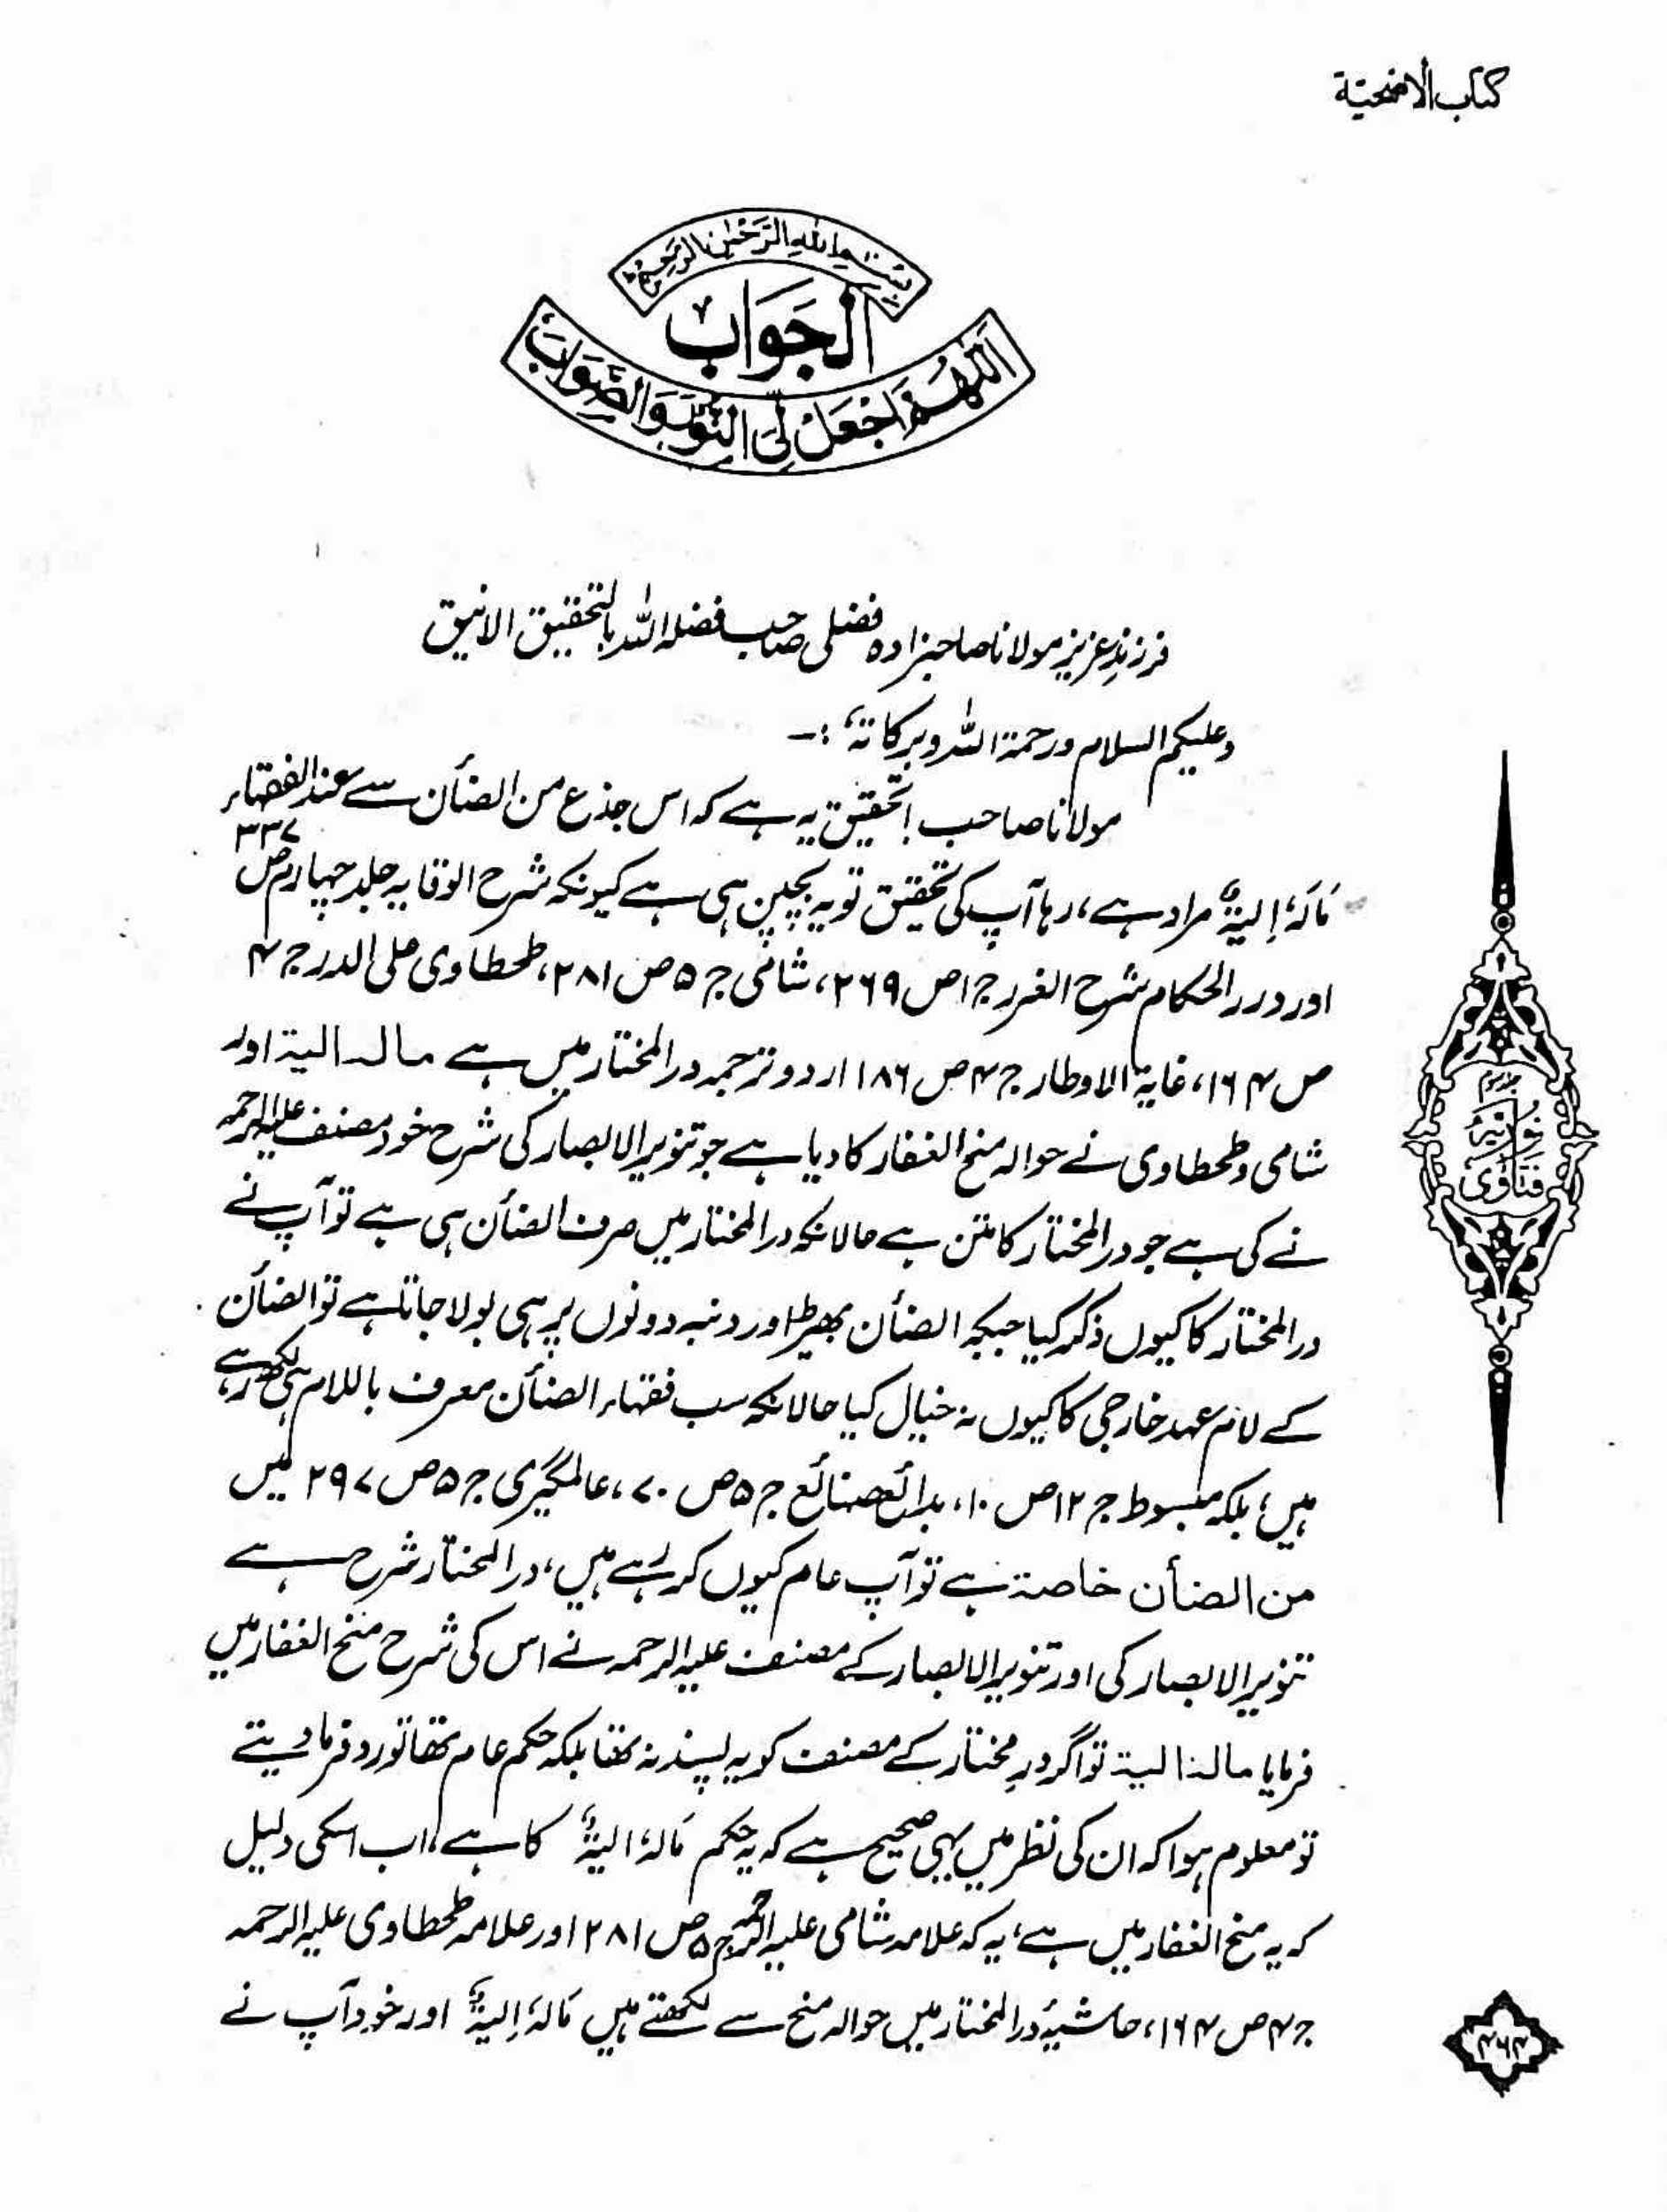 کتاب الاضحیۃ
بِسْمِ اللہِ الرَّحْمٰنِ الرَّحِیْمِ
اَلْجَوَابُ
اَللّٰھُمَّ اجْعَلْ لِّیَ النُّوْرَ وَالصَّوَابَ
فرزندِ عزیز مولانا صاحبزادہ فضلی صاحب فضلہ اللہ بالتحقیق الانیق
وعلیکم السلام ورحمۃ اللہ وبرکاتہ، :۔
مولانا صاحب! تحقیق یہ ہے کہ اس جذع من الضأن سے عند الفقہاء
مَالَہٗ اِلیۃٌ مراد ہے، رہا آپ کی تحقیق تو یہ بچپن ہی ہے کیونکہ شرح الوقایہ جلد چہارم ص ۳۳۷
اور درر الحکام شرح الغرر ج ۱ ص ۲۶۹، شامی ج ۵ ص ۲۸۱، طحطاوی علی الدر ج ۴
ص ۱۶۴، غایۃ الاوطار ج ۴ ص ۱۸۶ اردو ترجمہ در المختار میں ہے مالہ الیۃ اور
شامی و طحطاوی نے حوالہ منح الغفار کا دیا ہے جو تنویر الابصار کی شرح خود مصنف علیہ الرحمہ
نے کی ہے جو در المختار کا متن ہے حالانکہ در المختار میں صرف الضأن ہی ہے تو آپ نے
در المختار کا کیوں ذکر کیا جبکہ الضأن بھیڑ اور دنبہ دونوں پر ہی بولا جاتا ہے تو الضأن
کے لام عہد خارجی کا کیوں نہ خیال کیا حالانکہ سب فقہاء الضأن معرف باللام ہی لکھ رہے
ہیں، بلکہ مبسوط ج ۱۲ ص ۱۰، بدائع صنائع ج ۵ ص ۷۰، عالمگیری ج ۵ ص ۲۹۷ میں
من الضأن خاصۃ ہے تو آپ عام کیوں کر رہے ہیں، در المختار شرح ہے
تنویر الابصار کی اور تنویر الابصار کے مصنف علیہ الرحمہ نے اس کی شرح منح الغفار میں
فرمایا مالہ الیۃ تو اگر درِ مختار کے مصنف کو یہ پسند نہ تھا بلکہ حکم عام تھا تو رد فرما دیتے
تو معلوم ہوا کہ ان کی نظر میں یہی صحیح ہے کہ یہ حکم مَالَہٗ الیۃٌ کا ہے، اب اسکی دلیل
کہ یہ منح الغفار میں ہے، یہ کہ علامہ شامی علیہ الرحمہ ج ۵ ص ۲۸۱ اور علامہ طحطاوی علیہ الرحمہ
ج ۴ ص ۱۶۴، حاشیۂ در المختار میں حوالہ منح سے لکھتے ہیں مَالَہٗ اِلیۃٌ اور خود آپ نے
فتاوٰی نوریہ
۴۶۴